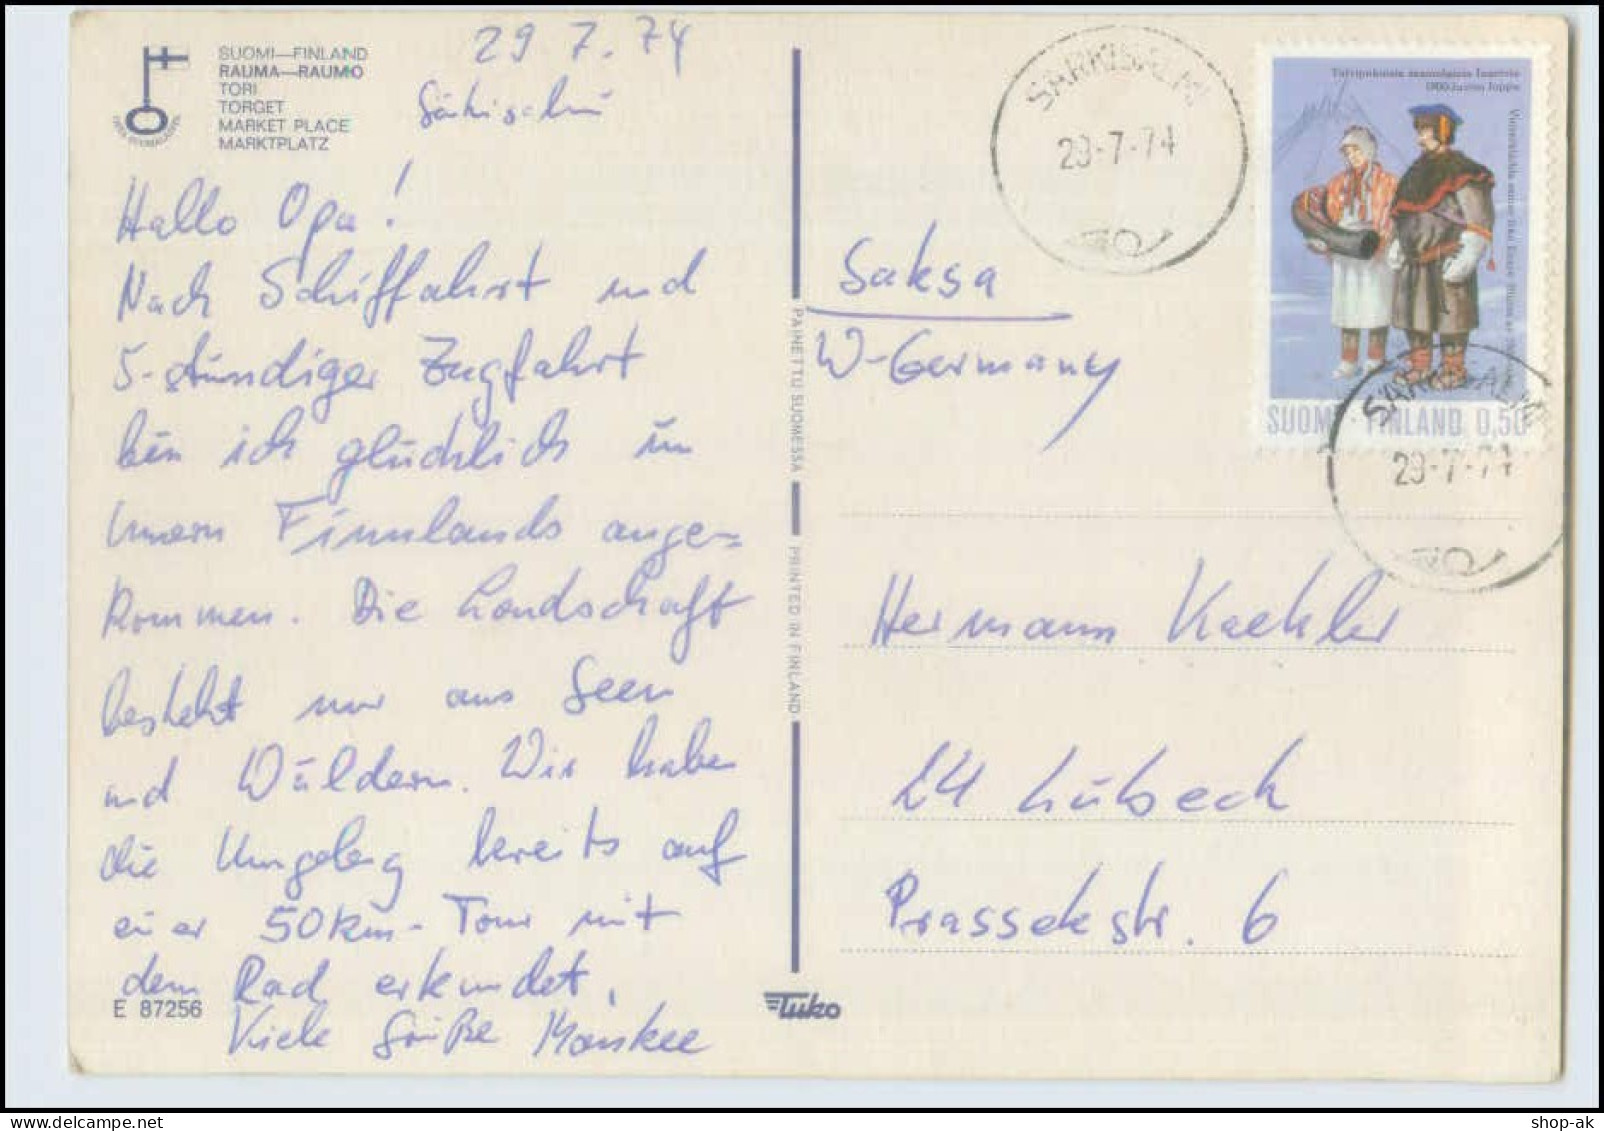 SUOMI—FINLAND
RAUMA—RAUMO
TORI
TORGET
MARKET PLACE
MARKTPLATZ
29 7. 74
Hallo Opa!
Nach Schiffahrt und
5-stündiger Zugfahrt
bin ich glücklich im
Innern Finnlands ange=
kommen. Die Landschaft
besteht nur aus Seen
und Wäldern. Wir haben
die Umgebg bereits auf
einer 50km-Tour mit
dem Rad erkundet.
Viele Grüße
E 87256
PAINETTU SUOMESSA
PRINTED IN FINLAND
Tuko
SÄRKISALMI
29-7-74
Saksa
W-Germany
SUOMI · FINLAND 0,50
SÄRKISALMI
29-7-74
Hermann Kaehler
24 Lübeck
Prassekstr. 6
shop-ak